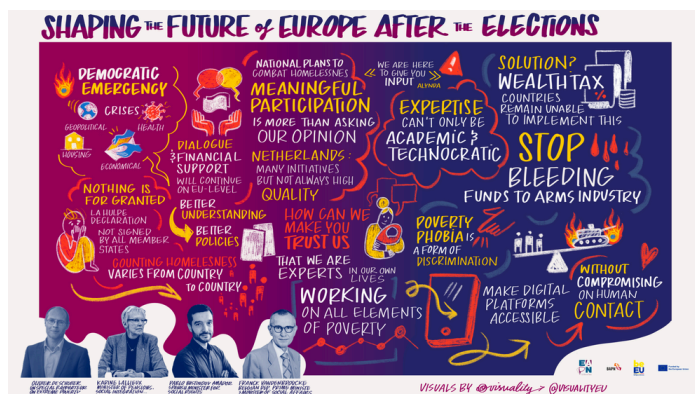 SHAPING THE FUTURE of EUROPE AFTER THE ELECTIONS
DEMOCRATIC
EMERGENCY
CRISES
GEOPOLITICAL
HEALTH
HOUSING
ECONOMICAL
NOTHING IS
FOR GRANTED
LA HULPE
DECLARATION
NOT SIGNED
BY ALL MEMBER
STATES
COUNTING HOMELESNESS
VARIES FROM COUNTRY
TO COUNTRY
DIALOGUE
& FINANCIAL
SUPPORT
WILL CONTINUE
ON EU-LEVEL
BETTER
UNDERSTANDING
BETTER
POLICIES
NATIONAL PLANS TO
COMBAT HOMELESSNES
MEANINGFUL
PARTICIPATION
IS MORE THAN ASKING
OUR OPINION
NETHERLANDS:
MANY INITIATIVES
BUT NOT ALWAYS HIGH
QUALITY
HOW CAN WE
MAKE YOU
TRUST US
THAT WE ARE
EXPERTS IN OUR OWN
LIVES
WORKING
ON ALL ELEMENTS
OF POVERTY
WE ARE HERE
TO GIVE YOU
INPUT
ALYNDA
EXPERTISE
CAN'T ONLY BE
ACADEMIC &
TECHNOCRATIC
POVERTY
PHOBIA IS
A FORM OF
DISCRIMINATION
SOLUTION?
WEALTH TAX
%
COUNTRIES
REMAIN UNABLE
TO IMPLEMENT THIS
STOP
BLEEDING
FUNDS TO ARMS INDUSTRY
MAKE DIGITAL
PLATFORMS
ACCESSIBLE
WITHOUT
COMPROMISING
ON HUMAN
CONTACT
OLIVIER DE SCHUTTER
UN SPECIAL RAPPORTEUR
ON EXTREME POVERTY
KARINE LALIEUX
MINISTER OF PENSIONS,
SOCIAL INTEGRATION
PABLO BUSTINDUY AMADOR
SPANISH MINISTER FOR
SOCIAL RIGHTS
FRANCK VANDENBROUCKE
BELGIAN DEP. PRIME MINISTER
& MINISTER OF SOCIAL AFFAIRS
EAPN
be
EU
VISUALS BY @visuality @VISUALITYEU